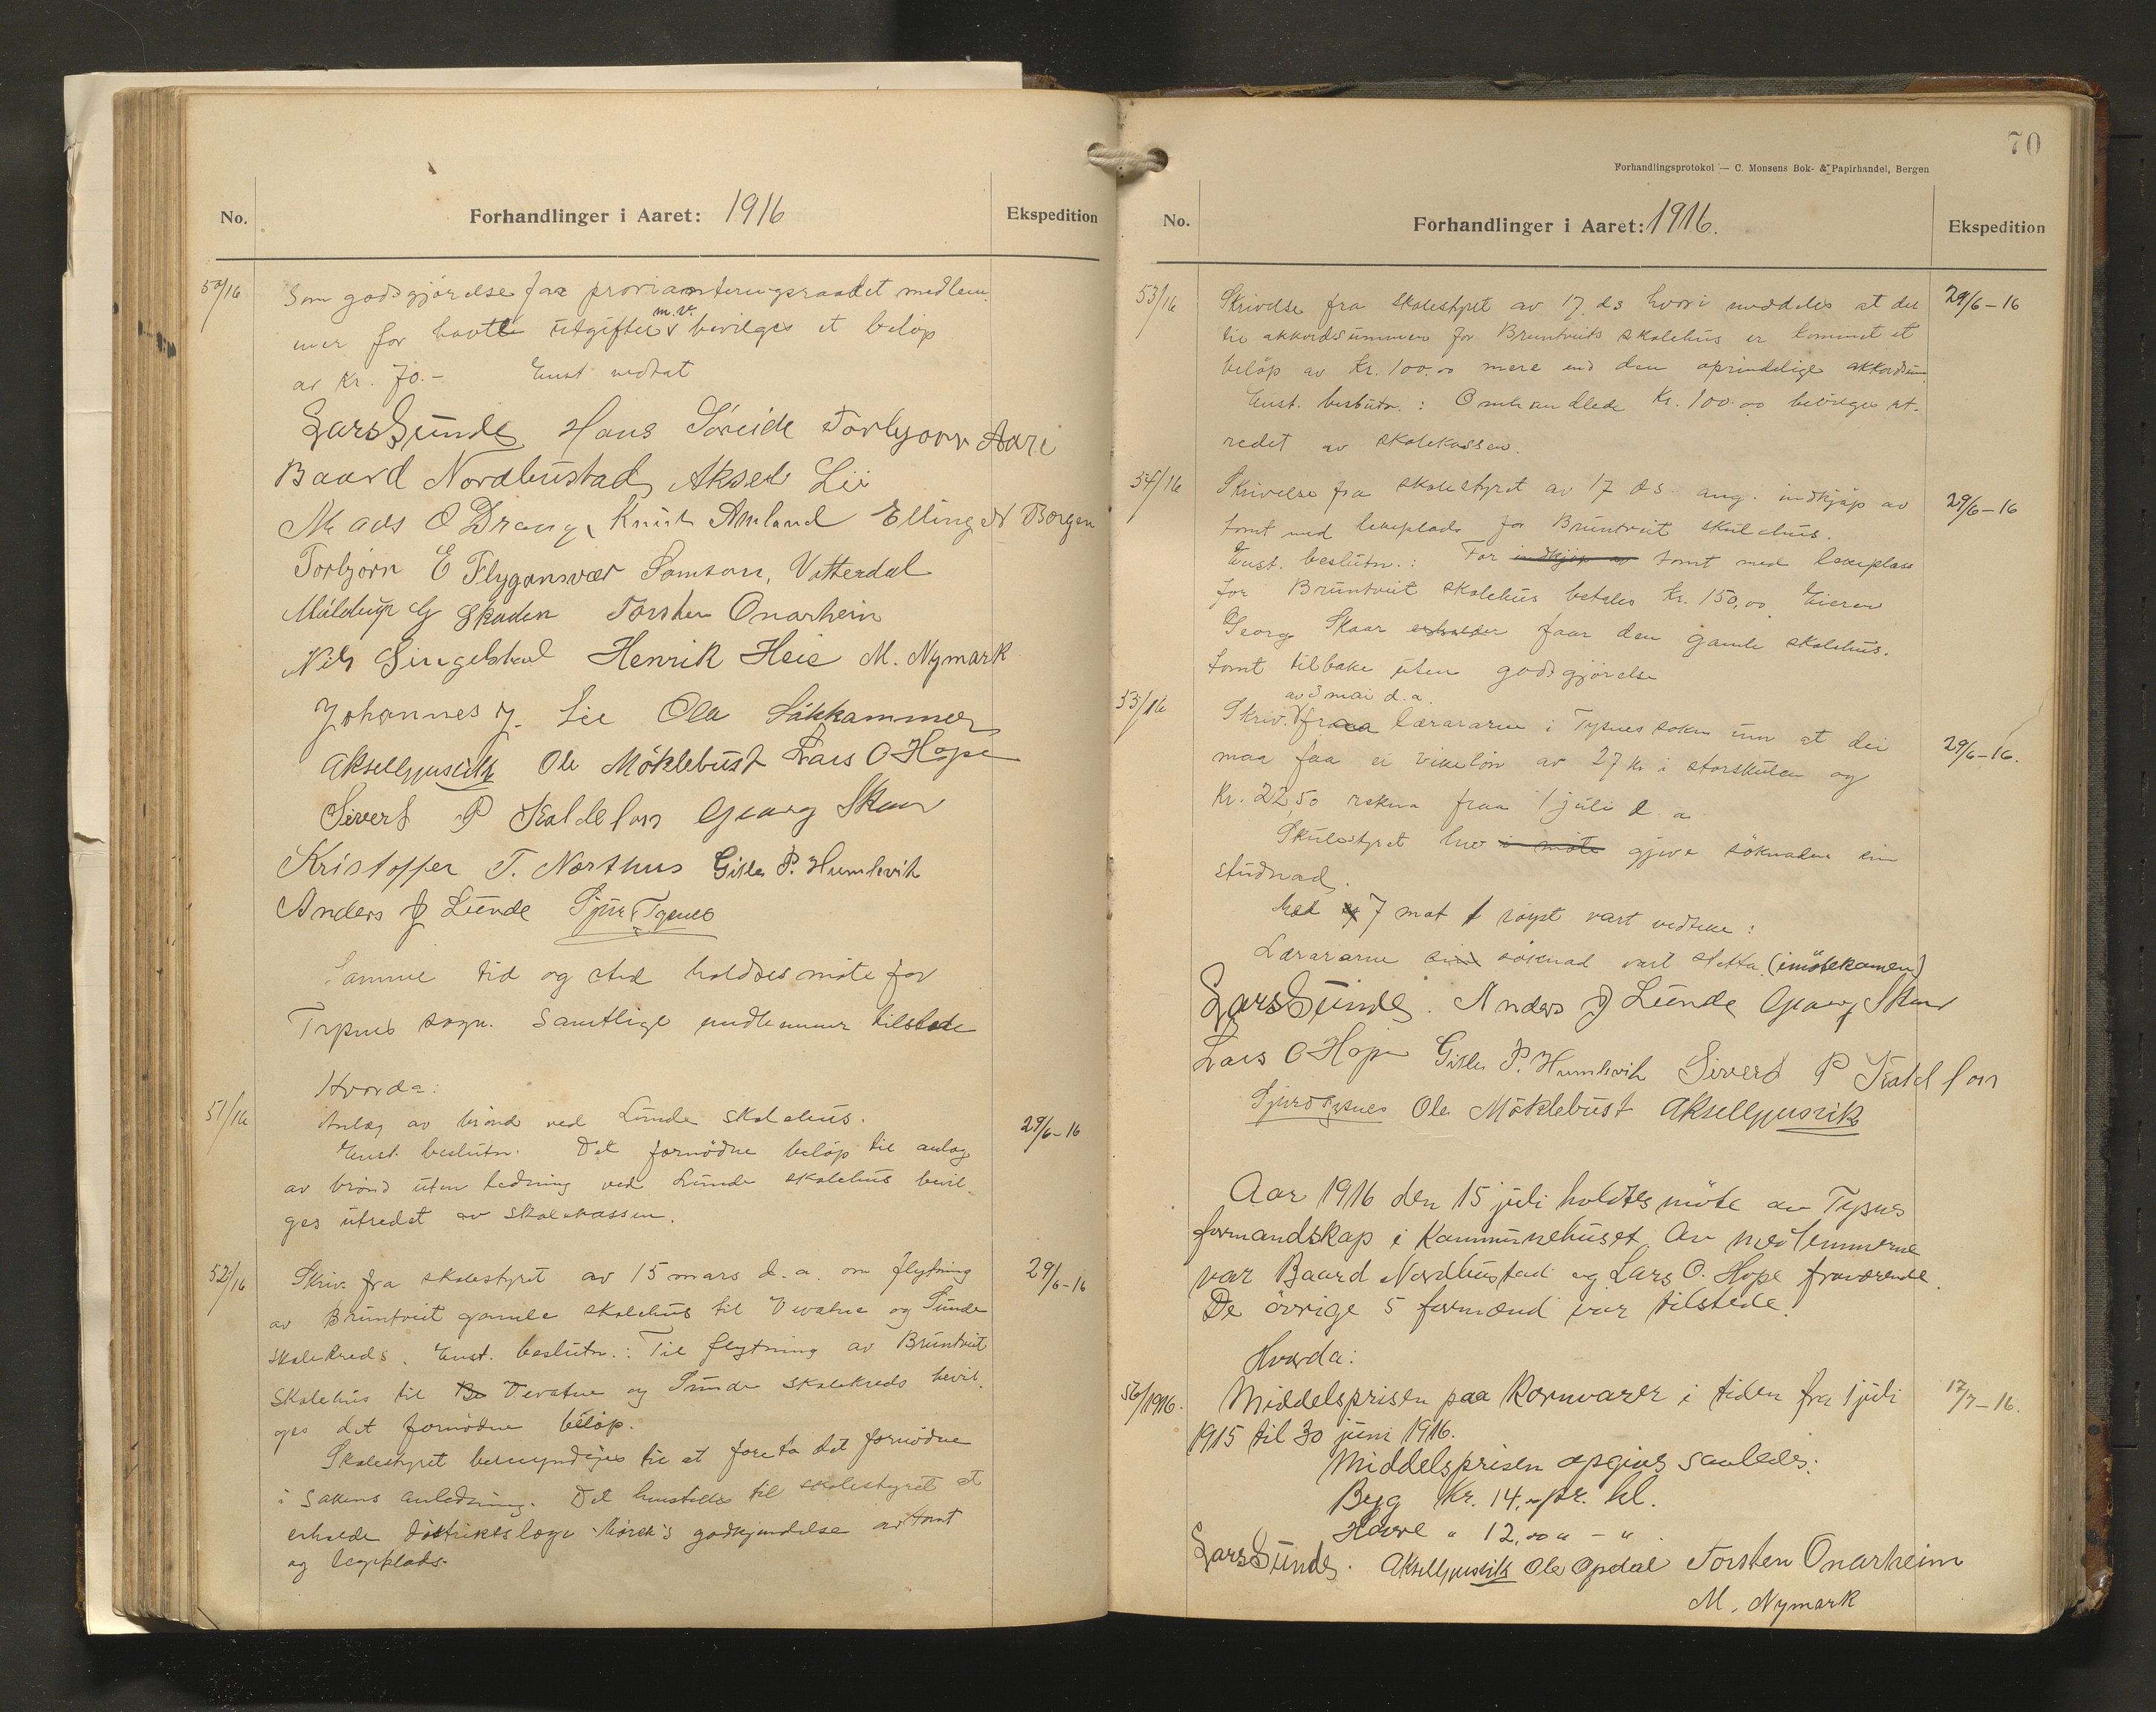 No.
Forhandlinger i Aaret: 1916
Ekspedition
50/16
Som godtgjørelse for provianteringsraadet medlem
mer for havte utgifter m.v. bevilges et beløp
av Kr. 70.- Enst. vedtat
Lars Sunde Hans Söreide Torbjørn Aare
Baard Nordhustad, Aksel Lie
Mads O Drange, Knut Amland Elling N Borgen
Torbjørn E Flygansvær Samson, Vatterdal
G Skaden Torsten Onarheim
Nils Singelstad Henrik Heie M. Nymark
Johannes J. Lie Ola Lökkammer
Aksel Gjuvsvik Ole Möklebust Lars O Hope
Sivert P Kaldefoss Georg Skaar
Kristoffer T. Northus Gisle P. Humlevik
Anders J Lunde Sjur Tysnes
Samme tid og sted holdtes møte for
Tysnes sogn. Samtlige medlemmer tilstede
Hvorda:
51/16
Anlæg av brönd ved Lunde skolehus.
29/6-16
Enst. beslutn. Det fornödne belöp til anlæg
av brönd uten ledning ved Lunde skolehus bevil-
ges utredet av skolekassen.
52/16
Skriv. fra skolestyret av 15 mars d.a. om flytning
29/6-16
av Bruntveit gamle skolehus til Uvatne og Sunde
skolekreds. Enst. beslutn.: Til flytning av Bruntveit
skolehus til Be Uvatne og Sunde skolekreds bevil-
ges det fornödne belöp.
Skolestyret bemyndiges til at foreta det fornödne
i sakens anledning. Det henstilles til skolestyret at
erholde distriktslæge Mörck's godkjendelse av tomt
og legeplads.
70
Forhandlingsprotokol — C. Monsens Bok- & Papirhandel, Bergen
No.
Forhandlinger i Aaret: 1916.
Ekspedition
53/16
Skrivelse fra skolestyret av 17. ds hvori meddeles at der
29/6-16
til akkordsummen for Bruntveits skolehus er kommet et
beløp av Kr. 100.00 mere end den oprindelige akkordsum
Enst. beslutn.: Omhandlede Kr. 100.00 bevilges ut-
redet av skolekassen.
54/16
Skrivelse fra skolestyret av 17 ds. ang. indkjøp av
29/6-16
tomt med lekeplads for Bruntveit skulehus.
Enst. beslutn.: For indkjøp av tomt med lekeplass
for Bruntveit skolehus betales Kr. 150,00. Eieren
Georg Skaar erholder faar den gamle skolehus-
tomt tilbake uten godtgjørelse
55/16
av 3 mai d.a.
Skriv. fraa lærararne i Tysnes sokn um at dei
29/6-16.
maa faa ei vikeløn av 27 kr i storskulen og
Kr. 22,50 rekna fraa 1 juli d. a.
Skulestyret hev i møte gjeve søknaden sin
studnad.
Med 7 mot 1 røyst vart vedteke:
Lærararne sin søknad vart stetta. (imøtekomen)
Lars Sunde. Anders J Lunde Georg Skaar
Lars O Hope Gisle P. Humlevik Sivert P Kaldefoss
Sjurd Tysnes Ole Möklebust Aksel Gjuvsvik
Aar 1916 den 15 juli holdtes möte av Tysnes
formandskap i Kommunehuset. Av medlemmerne
var Baard Nordhustad og Lars O. Hope fraværende.
De övrige 5 formænd var tilstede.
Hvorda:
56/1916.
Middelsprisen paa Kornvarer i tiden fra 1 juli
17/7-16.
1915 til 30 juni 1916.
Middelsprisen opgives saaledes:
Byg Kr. 14,00 pr. hl.
Havre " 12,00 " - "
Lars Sunde. Aksel Gjuvsvik Ole Opdal Torsten Onarheim
M. Nymark